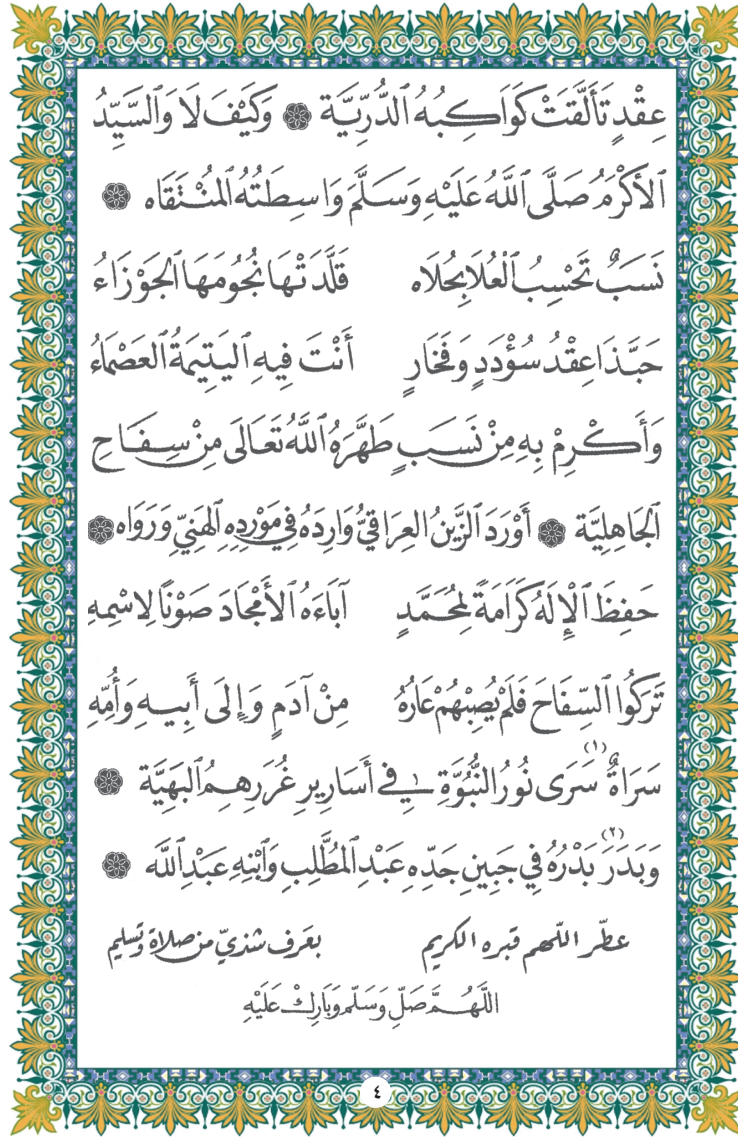 عِقْدٍ تَأَلَّقَتْ كَوَاكِبُهُ ٱلدُّرِّيَّة ۞ وَكَيْفَ لَا وَٱلسَّيِّدُ
ٱلْأَكْرَمُ صَلَّى ٱللَّهُ عَلَيْهِ وَسَلَّمَ وَاسِطَتُهُ ٱلْمُنْتَقَاه ۞
نَسَبٌ تَحْسِبُ ٱلْعُلَا بِحُلَاه قَلَّدَتْهَا نُجُومَهَا ٱلْجَوْزَاءُ
حَبَّذَا عِقْدُ سُؤْدَدٍ وَفَخَارٍ أَنْتَ فِيهِ ٱلْيَتِيمَةُ ٱلْعَصْمَاءُ
وَأَكْرِمْ بِهِ مِنْ نَسَبٍ طَهَّرَهُ ٱللَّهُ تَعَالَى مِنْ سِفَاحِ
ٱلْجَاهِلِيَّة ۞ أَوْرَدَ ٱلزَّيْنُ ٱلْعِرَاقِيُّ وَارِدَهُ فِي مَوْرِدِهِ ٱلْهَنِيِّ وَرَوَاه ۞
حَفِظَ ٱلْإِلَهُ كَرَامَةً لِمُحَمَّدٍ آبَاءَهُ ٱلْأَمْجَادَ صَوْنًا لِاسْمِهِ
تَرَكُوا ٱلسِّفَاحَ فَلَمْ يُصِبْهُمْ عَارُهُ مِنْ آدَمٍ وَإِلَى أَبِيهِ وَأُمِّهِ
سَرَاةٌ (١) سَرَى نُورُ النُّبُوَّةِ فِي أَسَارِيرِ غُرَرِهِمُ ٱلْبَهِيَّة ۞
وَبَدَرَ (٢) بَدْرُهُ فِي جَبِينِ جَدِّهِ عَبْدِ ٱلْمُطَّلِبِ وَٱبْنِهِ عَبْدِ ٱللَّه ۞
عطّر اللّهم قبره الكريم بعَرف شذيّ من صلاة وتسليم
اللَّهُمَّ صَلِّ وَسَلِّمْ وَبَارِكْ عَلَيْهِ
٤